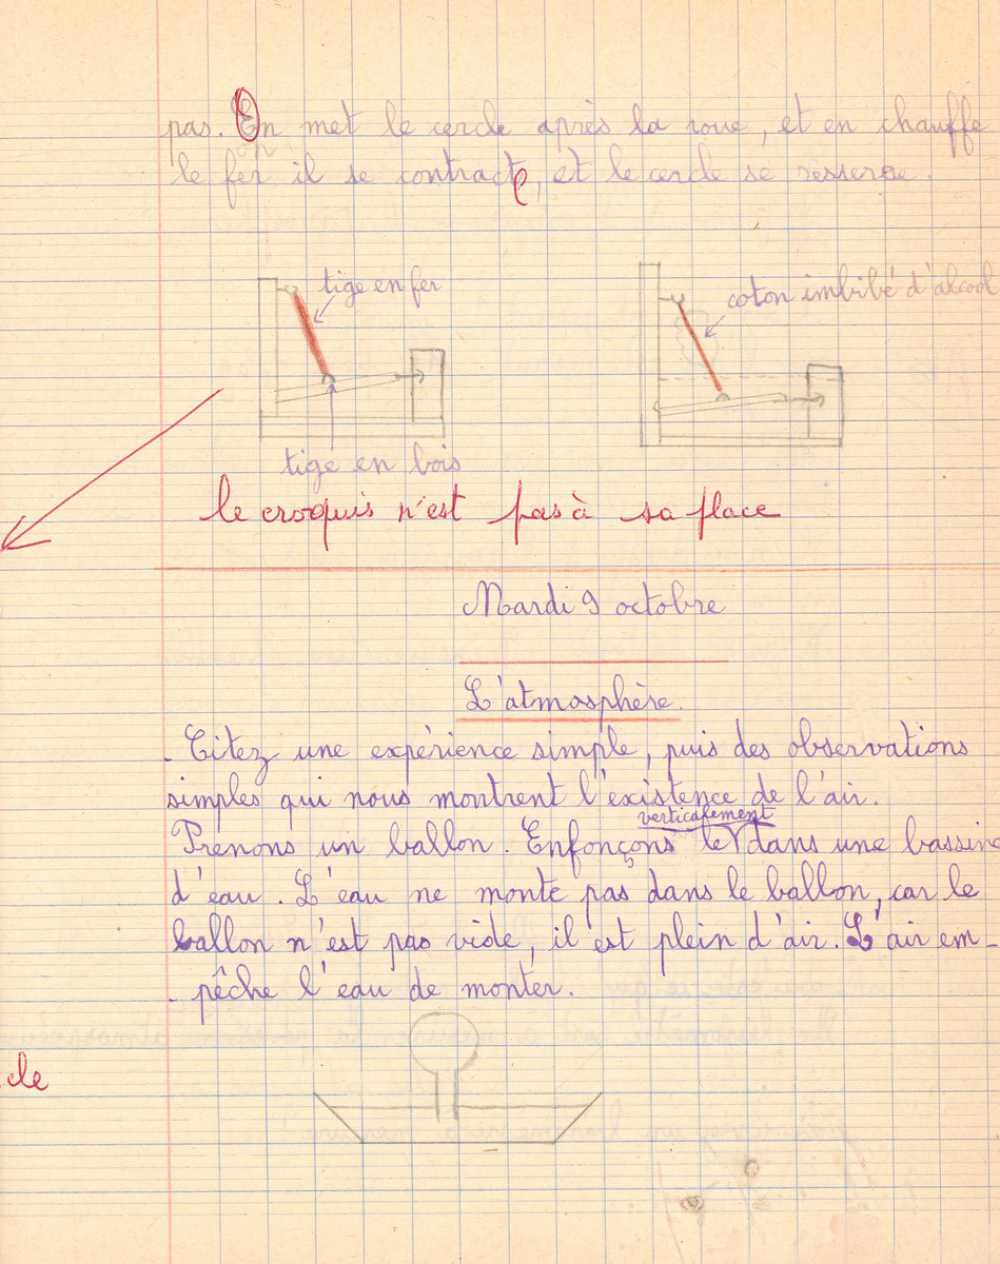 pas. En met le cercle après la roue, et en chauffe
le fer il se contracte, et le cercle se resserre.
tige en fer
coton imbibé d'alcool
tige en bois
le croquis n'est pas à sa place
Mardi 9 octobre
L'atmosphère.
- Citez une expérience simple, puis des observations
simples qui nous montrent l'existence de l'air.
verticalement
Prenons un ballon. Enfonçons le dans une bassine
d'eau. L'eau ne monte pas dans le ballon, car le
ballon n'est pas vide, il est plein d'air. L'air em-
- pêche l'eau de monter.
cle